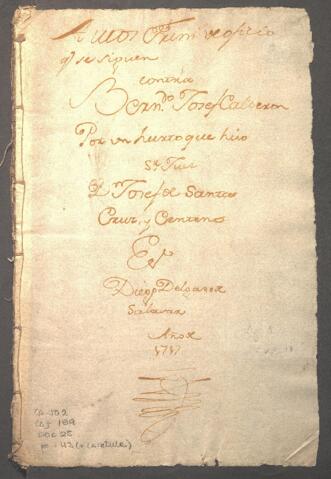 Autos Crim^s de oficio
q^e se siguen
contra
Bern^do Josef Calderon
Por un hurto que hiso
S^r Jues
D^n Josef de Santa
Cruz, y Centeno
Es^o
Diego Delgado
Salazar
Año de
1757
Co-102
Caj 189
Doc 28